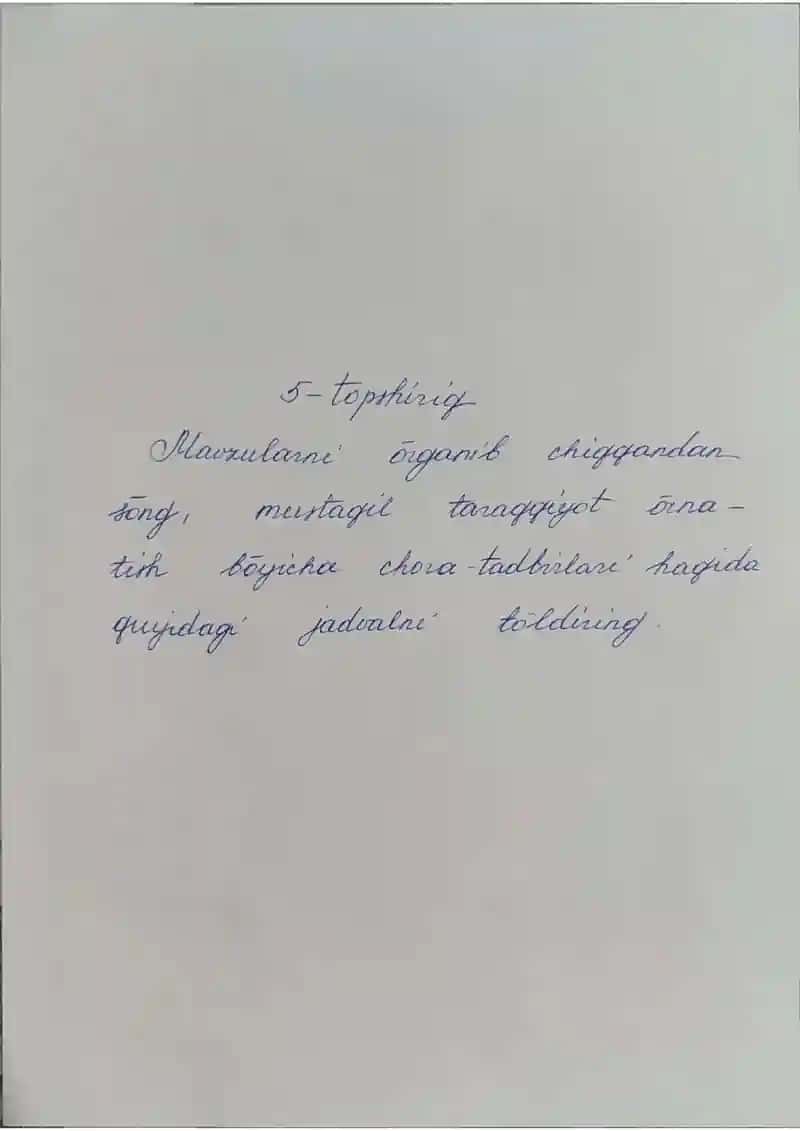 5-topshiriq
Mavzularni ōrganib chiqqandan
sōng, mustaqil taraqqiyot ōrna-
tish bōyicha chora-tadbirlari haqida
quyidagi jadvalni tōldiring.